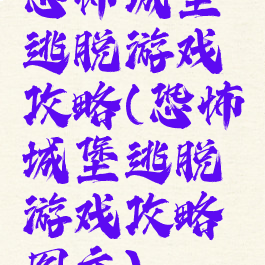 恐怖城堡
逃脱游戏
攻略(恐怖
城堡逃脱
游戏攻略
图文)